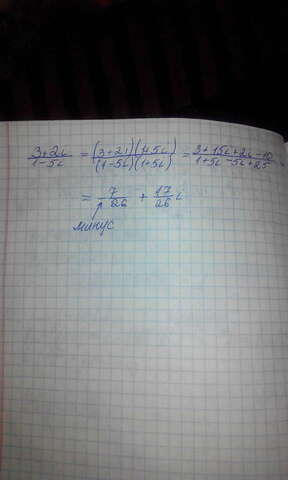 3+2i/1-5i = (3+2i)(1+5i)/(1-5i)(1+5i) = 3+15i+2i-10/1+5i-5i+25
= 7/26 + 17/26 i
минус